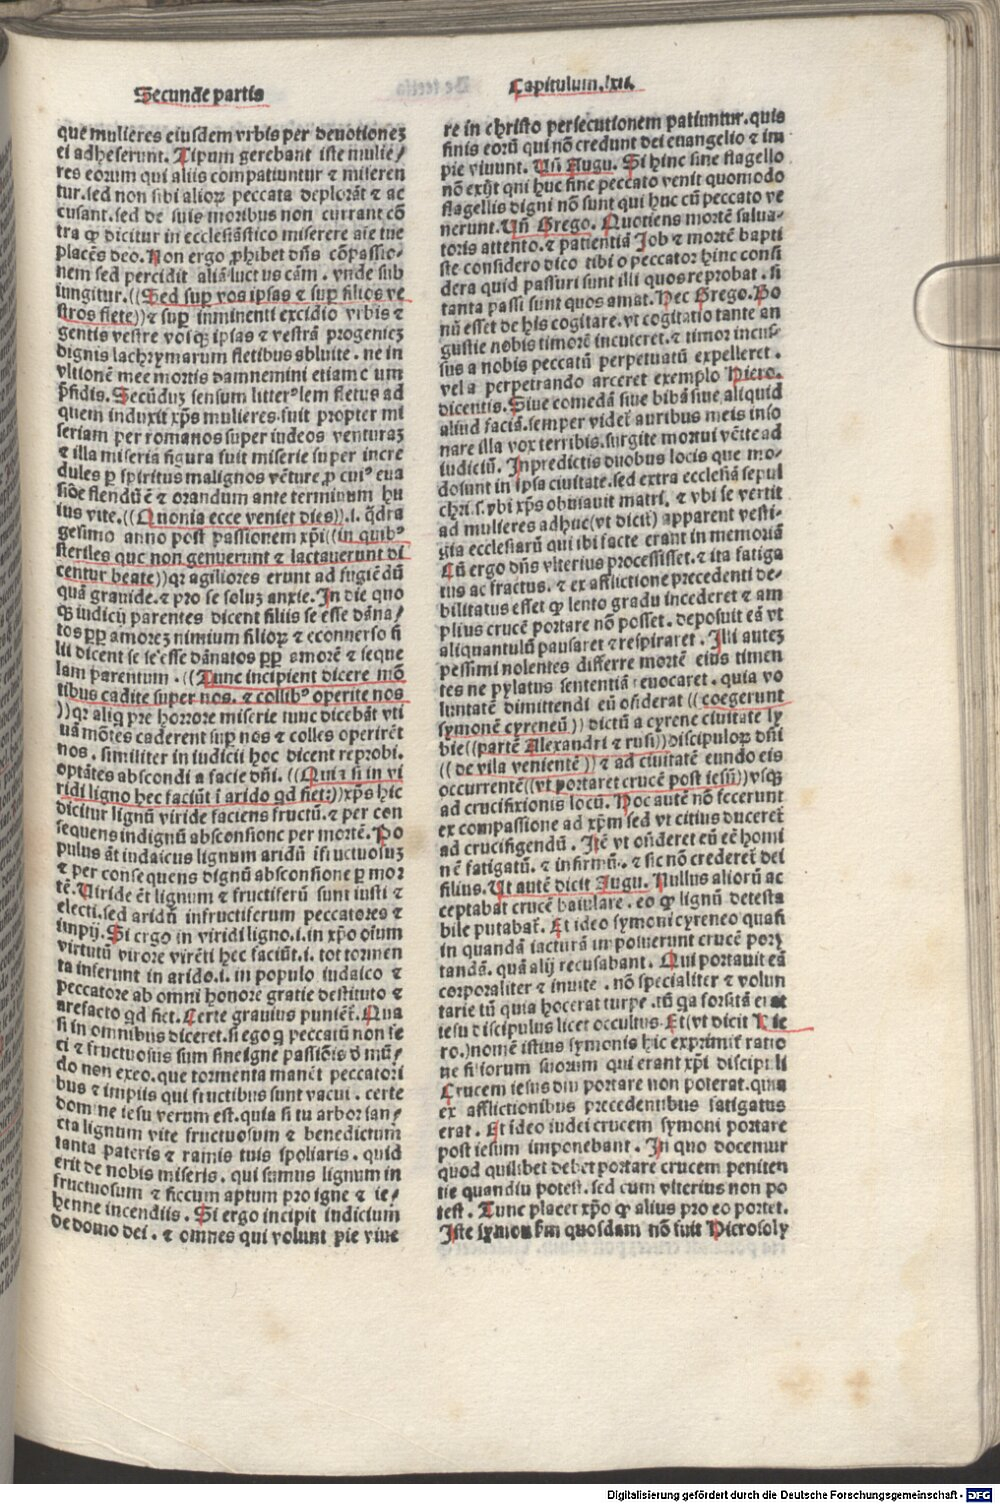 Secunde partis
Capitulum .lxii.
que mulieres eiusdem vrbis per deuotioneʒ
ei adheserunt. Tipum gerebant iste mulie/
res eorum qui aliis compatiuntur ⁊ miseren
tur. sed non sibi alioꝝ peccata deplorāt ⁊ ac
cusant. sed de suis moribus non currant cō
tra qꝫ dicitur in ecclesiāstico miserere aie tue
placēs deo. Non ergo ꝓhibet dn̄s cōpassio-
nem sed percidit aliā luctus cām. vnde sub
iungitur. ((Sed sup̄ vos ipsas ⁊ sup̄ filios ve
stros flete)) ⁊ sup̄ inminenti excidio vrbis ⁊
gentis vestre voiqꝫ ipsas ⁊ vestrā progenieʒ
dignis lachrymarum fletibus abluite. ne in
vltionē mee mortis damnemini etiam cum
ꝑfidis. Secūduʒ sensum litteralem fletus ad
quem induxit xp̄s mulieres. fuit propter mi
seriam per romanos super iudeos venturaʒ
⁊ illa miseria figura fuit miserie super incre
dules ꝑ spiritus malignos vēture ꝓ cuiꝰ eua
siōe flendū ē ⁊ orandum ante terminum hu
ius vite. ((Quonia ecce veniet dies)) .i. q̄dra
gesimo anno post passionem xp̄i ((in quibꝰ
steriles que non genuerunt ⁊ lactauerunt di
centur beate)) qꝛ agiliores erunt ad fugiēdū
quā grauide. ⁊ pro se soluʒ anxie. In die quo
qꝫ iudicij parentes dicent filiis se esse dāna/
tos ꝓp̄ amoreʒ nimium filioꝝ ⁊ econuerso fi
lii dicent se īe esse dānatos ꝓp̄ amorē ⁊ seque
lam parentum. ((Tunc incipient dicere mō
tibus cadite super nos. ⁊ collibꝰ operite nos
)) qꝛ aliq̄ pre horrore miserie tunc dicebāt vti
uā mōtes caderent sup̄ nos ⁊ colles operirēt
nos. similiter in iudicii hoc dicent reprobi.
optātes abscondi a facie dn̄i. ((Quia si in vi
ridi ligno hec faciūt ī arido qd fiet:)) xp̄s hic
dicitur lignū viride faciens fructū. ⁊ per con
sequens indignū absconsione per mortē. Po
pulus āt iudaicus lignum aridū īfructuosuʒ
⁊ per consequens dignū absconsione ꝑ mor
tē. Viride ēt lignum ⁊ fructiferū sunt iusti ⁊
electi. sed aridū infructiferum peccatores ⁊
impij. Si ergo in viridi ligno .i. in xp̄o oīum
virtutū virore virēti hec faciūt .i. tot tormen
ta inferunt in arido .i. in populo iudaico ⁊
peccatore ab omni honore gratie destituto ⁊
arefacto qd fiet. Certe grauius puniet̄. Qua
si in omnibus diceret. si ego qͥ peccatū non fe
ci ⁊ fructuosus sum sine igne passiōis d̄ mū/
do non exeo. que tormenta manēt peccatori
bus ⁊ impiis qui fructibus sunt vacui. certe
domine iesu verum est. quia si tu arbor san/
cta lignum vite fructuosum ⁊ benedictum
tanta pateris ⁊ ramis tuis spoliaris. quid
erit de nobis miseris. qui sumus lignum in
fructuosum ⁊ siccum aptum pro igne ⁊ ie/
henne incendiis. Si ergo incipit iudicium
de domo dei. ⁊ omnes qui volunt pie viue
re in christo persecutionem patiuntur. quis
finis eorū qui nō credunt dei euangelio ⁊ im
pie viuunt. Vn̄ Augu. Si hinc sine flagello
nō exijt qui huc sine peccato venit quomodo
flagellis digni nō sunt qui huc cū peccato ve
nerunt. Vn̄ Grego. Quotiens mortē salua-
toris attento. ⁊ patientiā Job ⁊ mortē bapti
ste considero dico tibi o peccator hinc consi
dera quid passuri sunt illi quos reprobat. si
tanta passi sunt quos amat. Hec Grego. Bo
nū esset de his cogitare. vt cogitatio tante an
gustie nobis timorē incuteret. ⁊ timor incus-
sus a nobis peccatū perpetuatū expelleret.
vel a perpetrando arceret exemplo Hiero.
dicentis. Siue comedā siue bibā siue aliquid
aliud faciā. semper videt̄ auribus meis inso
nare illa vox terribis. surgite mortui vēite ad
iudiciū. In predictis duobus locis que mo-
do sunt in ipsa ciuitate. sed extra ecclesiā sepul
chri. s. vbi xp̄s obuiauit matri. ⁊ vbi se vertit
ad mulieres adhuc (vt dicit̄) apparent vesti-
gia ecclesiarū qui ibi facte erant in memoriā
Cū ergo dn̄s vlterius processisset. ⁊ ita fatiga
tus ac fractus. ⁊ ex afflictione precedenti de-
bilitatus esset qꝫ lento gradu incederet ⁊ am
plius crucē portare nō posset. deposuit eā vt
aliquantulū pausaret ⁊ respiraret. Illi auteʒ
pessimi nolentes differre mortē eius timen
tes ne pylatus sententiā reuocaret. quia vo
luntatē dimittendi eū on̄derat ((coegerunt
symonē cyreneū)) dictū a cyrene ciuitate ly
bie ((partē Alexandri ⁊ rufi)) discipuloꝝ dn̄i
((de vila venientē)) ⁊ ad ciuitatē eundo eis
occurrentē ((vt portaret crucē post iesū)) vsqꝫ
ad crucifixionis locū. Hoc autē nō fecerunt
ex compassione ad xp̄m sed vt citius duceret̄
ad crucifigendū. Itē vt on̄deret eū eē homi
nē fatigatū. ⁊ infirmū. ⁊ sic nō crederet̄ dei
filius. Ut autē dicit Augu. Nullus aliorū ac
ceptabat crucē baiulare. eo qꝫ lignū detesta
bile putabat̄. Et ideo symoni cyreneo quasi
in quandā iacturā imposuerunt crucē por
tandā. quā alij recusabant. Qui portauit eā
corporaliter ⁊ inuite. nō specialiter ⁊ volun
tarie tū quia hoc erat turpe. tū qa forsitā erat
iesu discipulus licet occultus. Et (vt dicit Hie
ro.) nomē istius symonis hic exprimit̄ ratio
ne filiorum suorum qui erant xp̄i discipuli
Crucem iesus diu portare non poterat. quia
ex afflictionibus precedentibus fatigatus
erat. Et ideo iudei crucem symoni portare
post iesum imponebant. In quo docemur
quod quilibet debet portare crucem peniten
tie quandiu potest. sed cum vlterius non po
test. Tunc placet xp̄o qꝫ alius pro eo portet.
Iste symon s̄m quosdam nō fuit Hierosoly
Digitalisierung gefördert durch die Deutsche Forschungsgemeinschaft - DFG